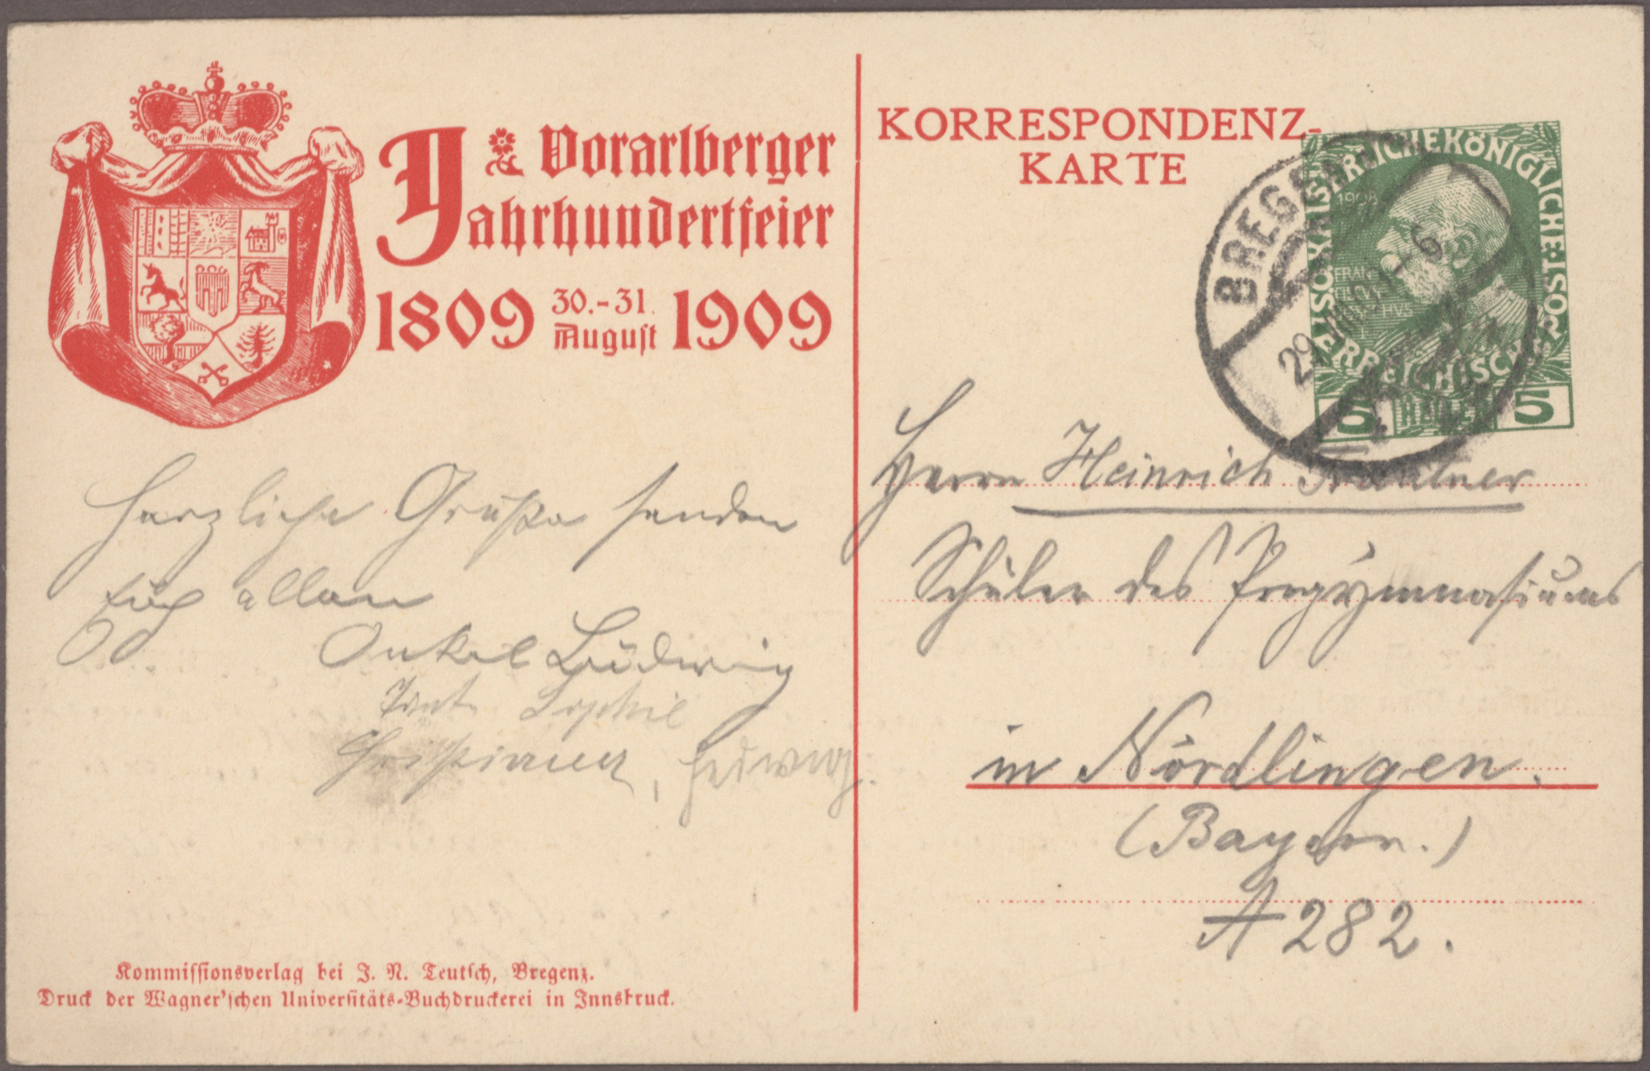 Vorarlberger
Jahrhundertfeier
1809 30.-31. August 1909
Herzliche Grüße senden
Euch allen
Onkel Ludwig
Tante Sophie
Hedwig.
Kommissionsverlag bei J. N. Teutsch, Bregenz.
Druck der Wagner'schen Universitäts-Buchdruckerei in Innsbruck.
KORRESPONDENZ-
KARTE
KAISERLICHEKÖNIGLICHE ÖSTERREICHISCHE
1908
5 HELLER 5
BREGENZ
29
Herrn Heinrich
Schüler des Progymnasiums
in Nördlingen.
(Bayern.)
A 282.